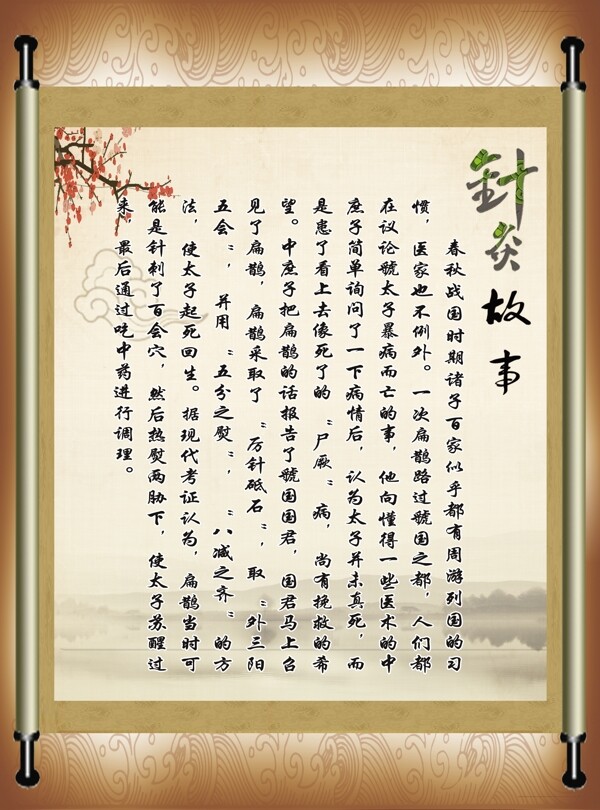 針灸故事
春秋战国时期诸子百家似乎都有周游列国的习
惯，医家也不例外。一次扁鹊路过虢国之都，人们都
在议论虢太子暴病而亡的事，他向懂得一些医术的中
庶子简单询问了一下病情后，认为太子并未真死，而
是患了看上去像死了的“尸厥”病，尚有挽救的希
望。中庶子把扁鹊的话报告了虢国国君，国君马上召
见了扁鹊，扁鹊采取了“厉针砥石”，取“外三阳
五会”，并用“五分之熨”，“八减之齐”的方
法，使太子起死回生。据现代考证认为，扁鹊当时可
能是针刺了百会穴，然后热熨两胁下，使太子苏醒过
来，最后通过吃中药进行调理。